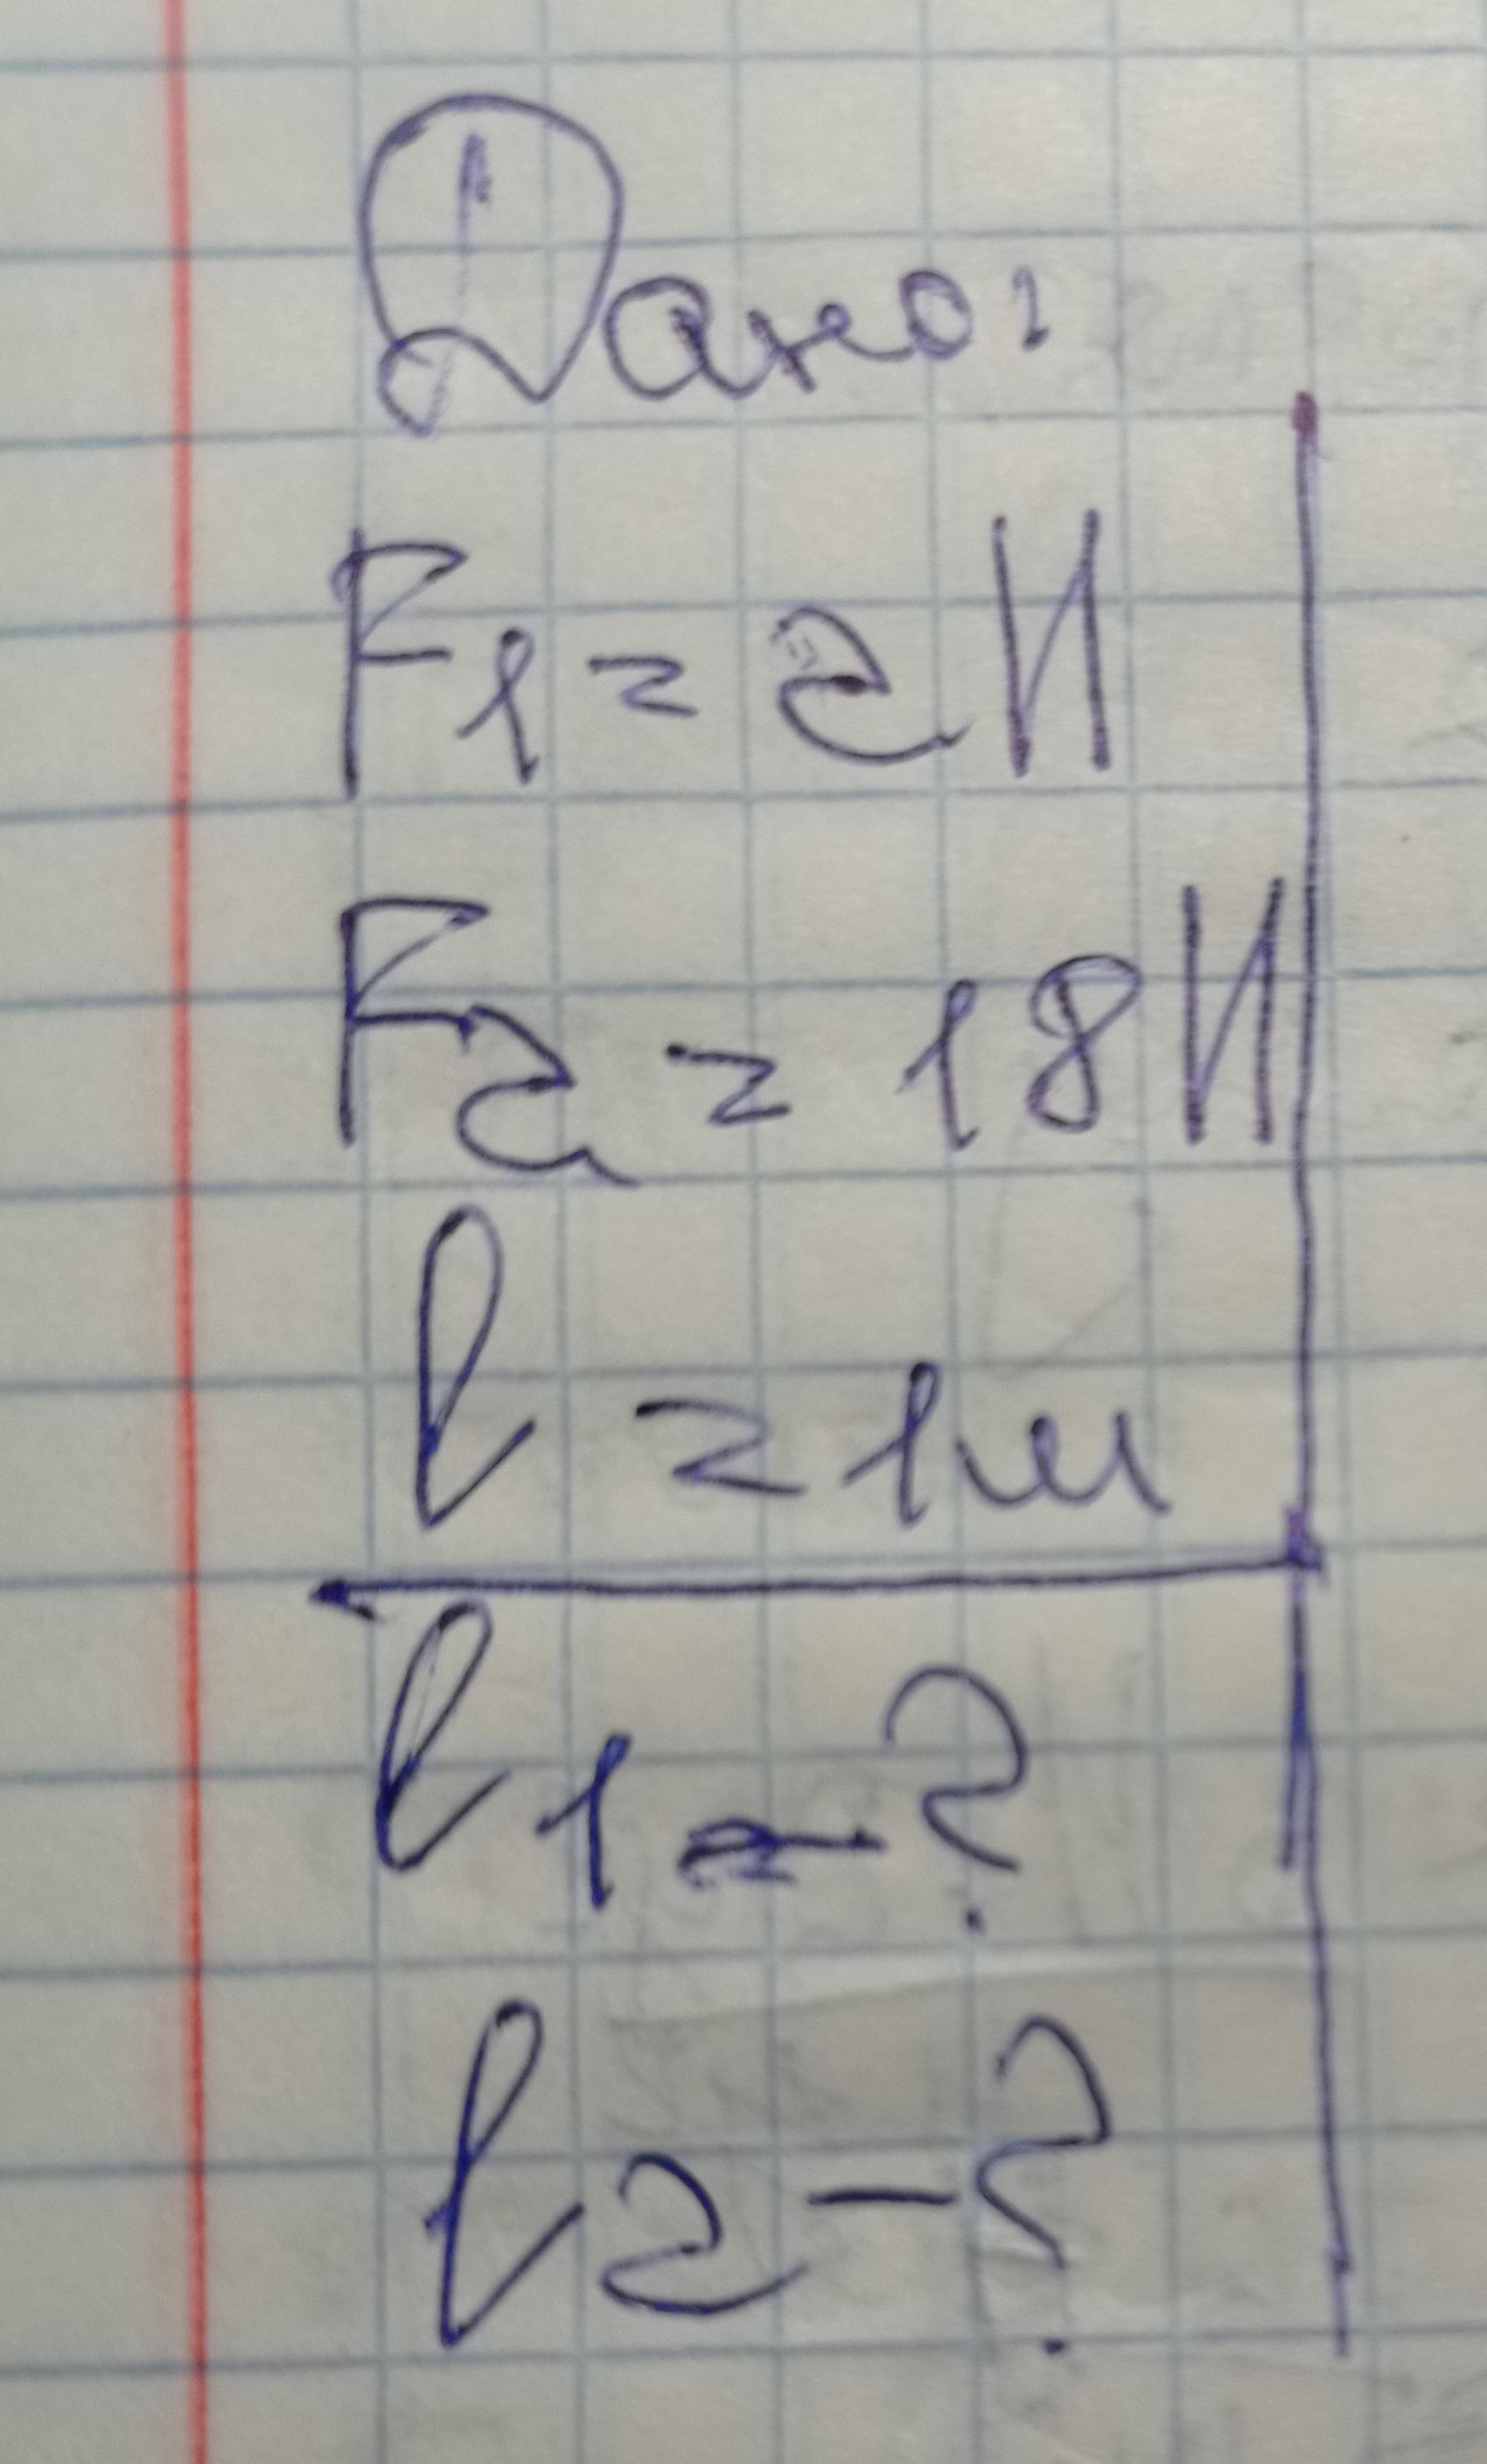 Дано:
F1 = 2 Н
F2 = 18 Н
l = 1 м
l1 - ?
l2 - ?